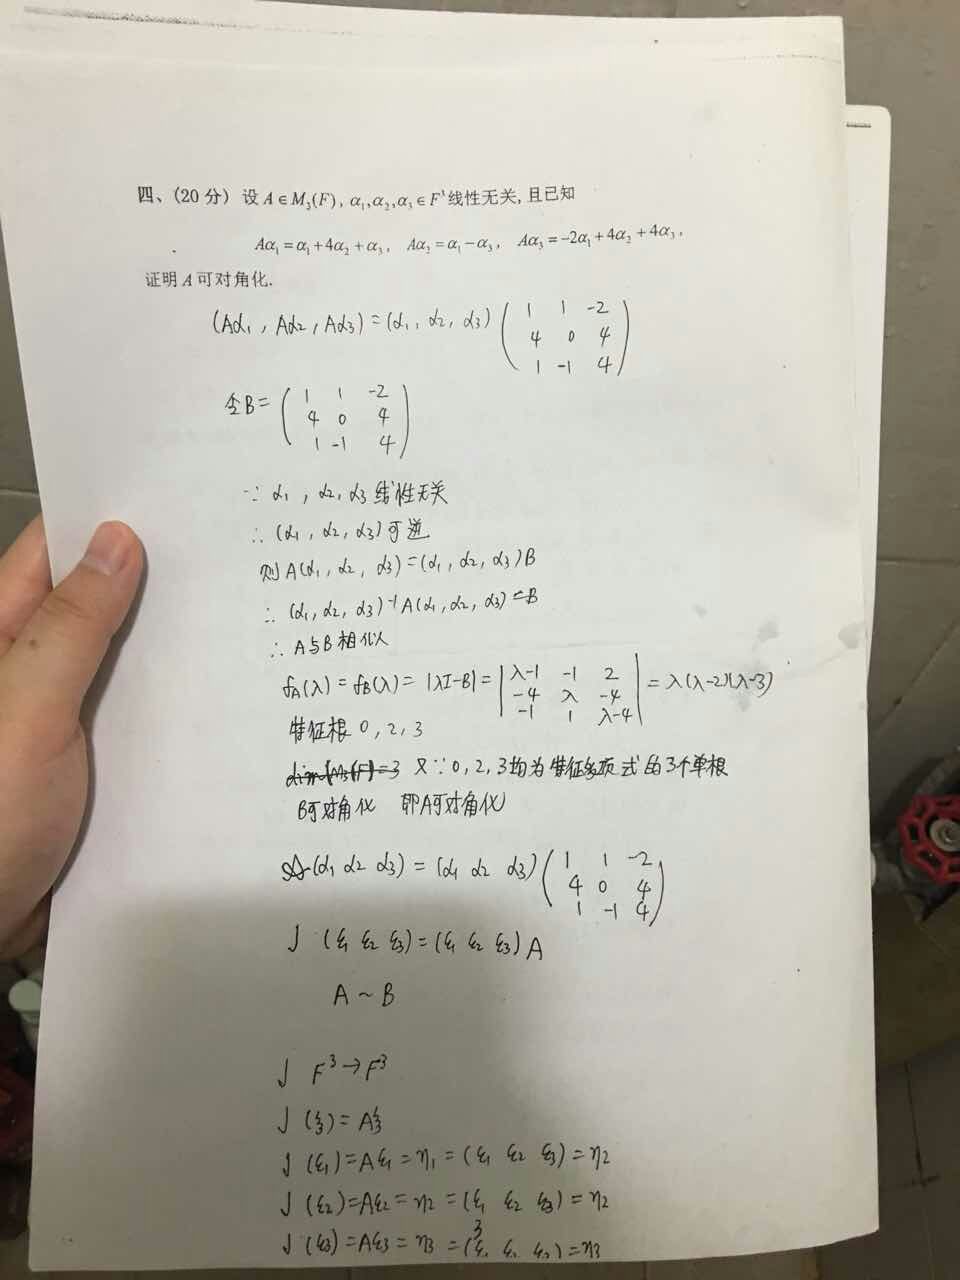 四、(20 分) 设 A∈M₃(F), α₁,α₂,α₃∈F³ 线性无关, 且已知
Aα₁=α₁+4α₂+α₃, Aα₂=α₁−α₃, Aα₃=−2α₁+4α₂+4α₃,
证明 A 可对角化.
(Aα₁, Aα₂, Aα₃)=(α₁, α₂, α₃)
1 1 -2
4 0 4
1 -1 4
令B=
1 1 -2
4 0 4
1 -1 4
∵ α₁, α₂, α₃ 线性无关
∴ (α₁, α₂, α₃)可逆
则A(α₁, α₂, α₃)=(α₁, α₂, α₃)B
∴ (α₁, α₂, α₃)⁻¹A(α₁, α₂, α₃)=B
∴ A与B相似
f_A(λ)=f_B(λ)=|λI-B|=
λ-1 -1 2
-4 λ -4
-1 1 λ-4
=λ(λ-2)(λ-3)
特征根 0, 2, 3
dim(M₃(F))=3 又∵0, 2, 3均为特征多项式的3个单根
B可对角化 即A可对角化
(α₁ α₂ α₃)=(α₁ α₂ α₃)
1 1 -2
4 0 4
1 -1 4
(ξ₁ ξ₂ ξ₃)=(ξ₁ ξ₂ ξ₃)A
A~B
F³→F³
(ξ)=Aξ
(ξ₁)=Aξ₁=η₁=(ξ₁ ξ₂ ξ₃)=η₂
(ξ₂)=Aξ₂=η₂=(ξ₁ ξ₂ ξ₃)=η₂
(ξ₃)=Aξ₃=η₃=(ξ₁ ξ₂ ξ₃)=η₃